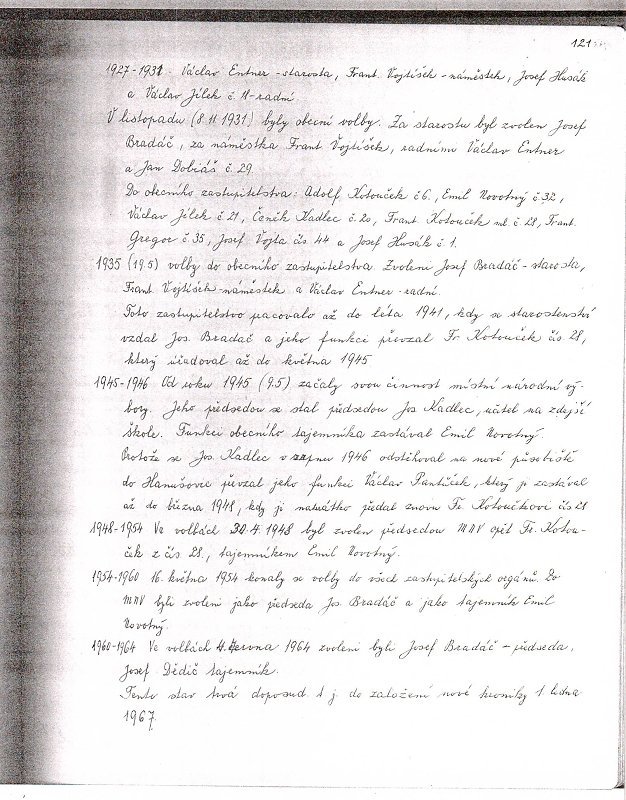 121
1927-1931 Václav Entner - starosta, Frant. Vojtíšek - náměstek, Josef Husák
a Václav Jílek č. 11 - radní.
V listopadu (8.11.1931) byly obecní volby. Za starostu byl zvolen Josef
Bradáč, za náměstka Frant Vojtíšek, radními Václav Entner
a Jan Dobiáš č. 29.
Do obecního zastupitelstva: Adolf Kotouček č 6., Emil Novotný č. 32,
Václav Jílek č 21, Čeněk Kadlec č. 20, Frant Kotouček ml. č 28, Frant.
Gregor č 35, Josef Vojta čís. 44 a Josef Husák č 1.
1935 (19.5) volby do obecního zastupitelstva. Zvoleni Josef Bradáč - starosta,
Frant. Vojtíšek - náměstek a Václav Entner - radní.
Toto zastupitelstvo pracovalo až do léta 1941, kdy se starostenství
vzdal Jos. Bradáč a jeho funkci převzal Fr. Kotouček čís 28,
který úřadoval až do května 1945
1945-1946 Od roku 1945 (9.5) začaly svou činnost místní národní vý-
bory. Jeho předsedou se stal předsedou Jos Kadlec, učitel na zdejší
škole. Funkci obecního tajemníka zastával Emil Novotný.
Protož se Jos. Kadlec v srpnu 1946 odstěhoval na nové působiště
do Hanušovic převzal jeho funkci Václav Pantůček, který ji zastával
až do března 1948, kdy ji nakrátko předal znovu Fr. Kotoučkovi čís 28
1948-1954 Ve volbách 30.4.1948 byl zvolen předsedou MNV opět Fr. Kotou-
ček z čís 28., tajemníkem Emil Novotný.
1954-1960 16. května 1954 konaly se volby do všech zastupitelských orgánů. Do
MNV byli zvoleni jako předseda Jos. Bradáč a jako tajemník Emil
Novotný.
1960-1964 Ve volbách 4. června 1964 zvoleni byli Josef Bradáč - předseda,
Josef Dědič tajemník.
Tento stav trvá doposud t. j. do založení nové kroniky 1 ledna
1967